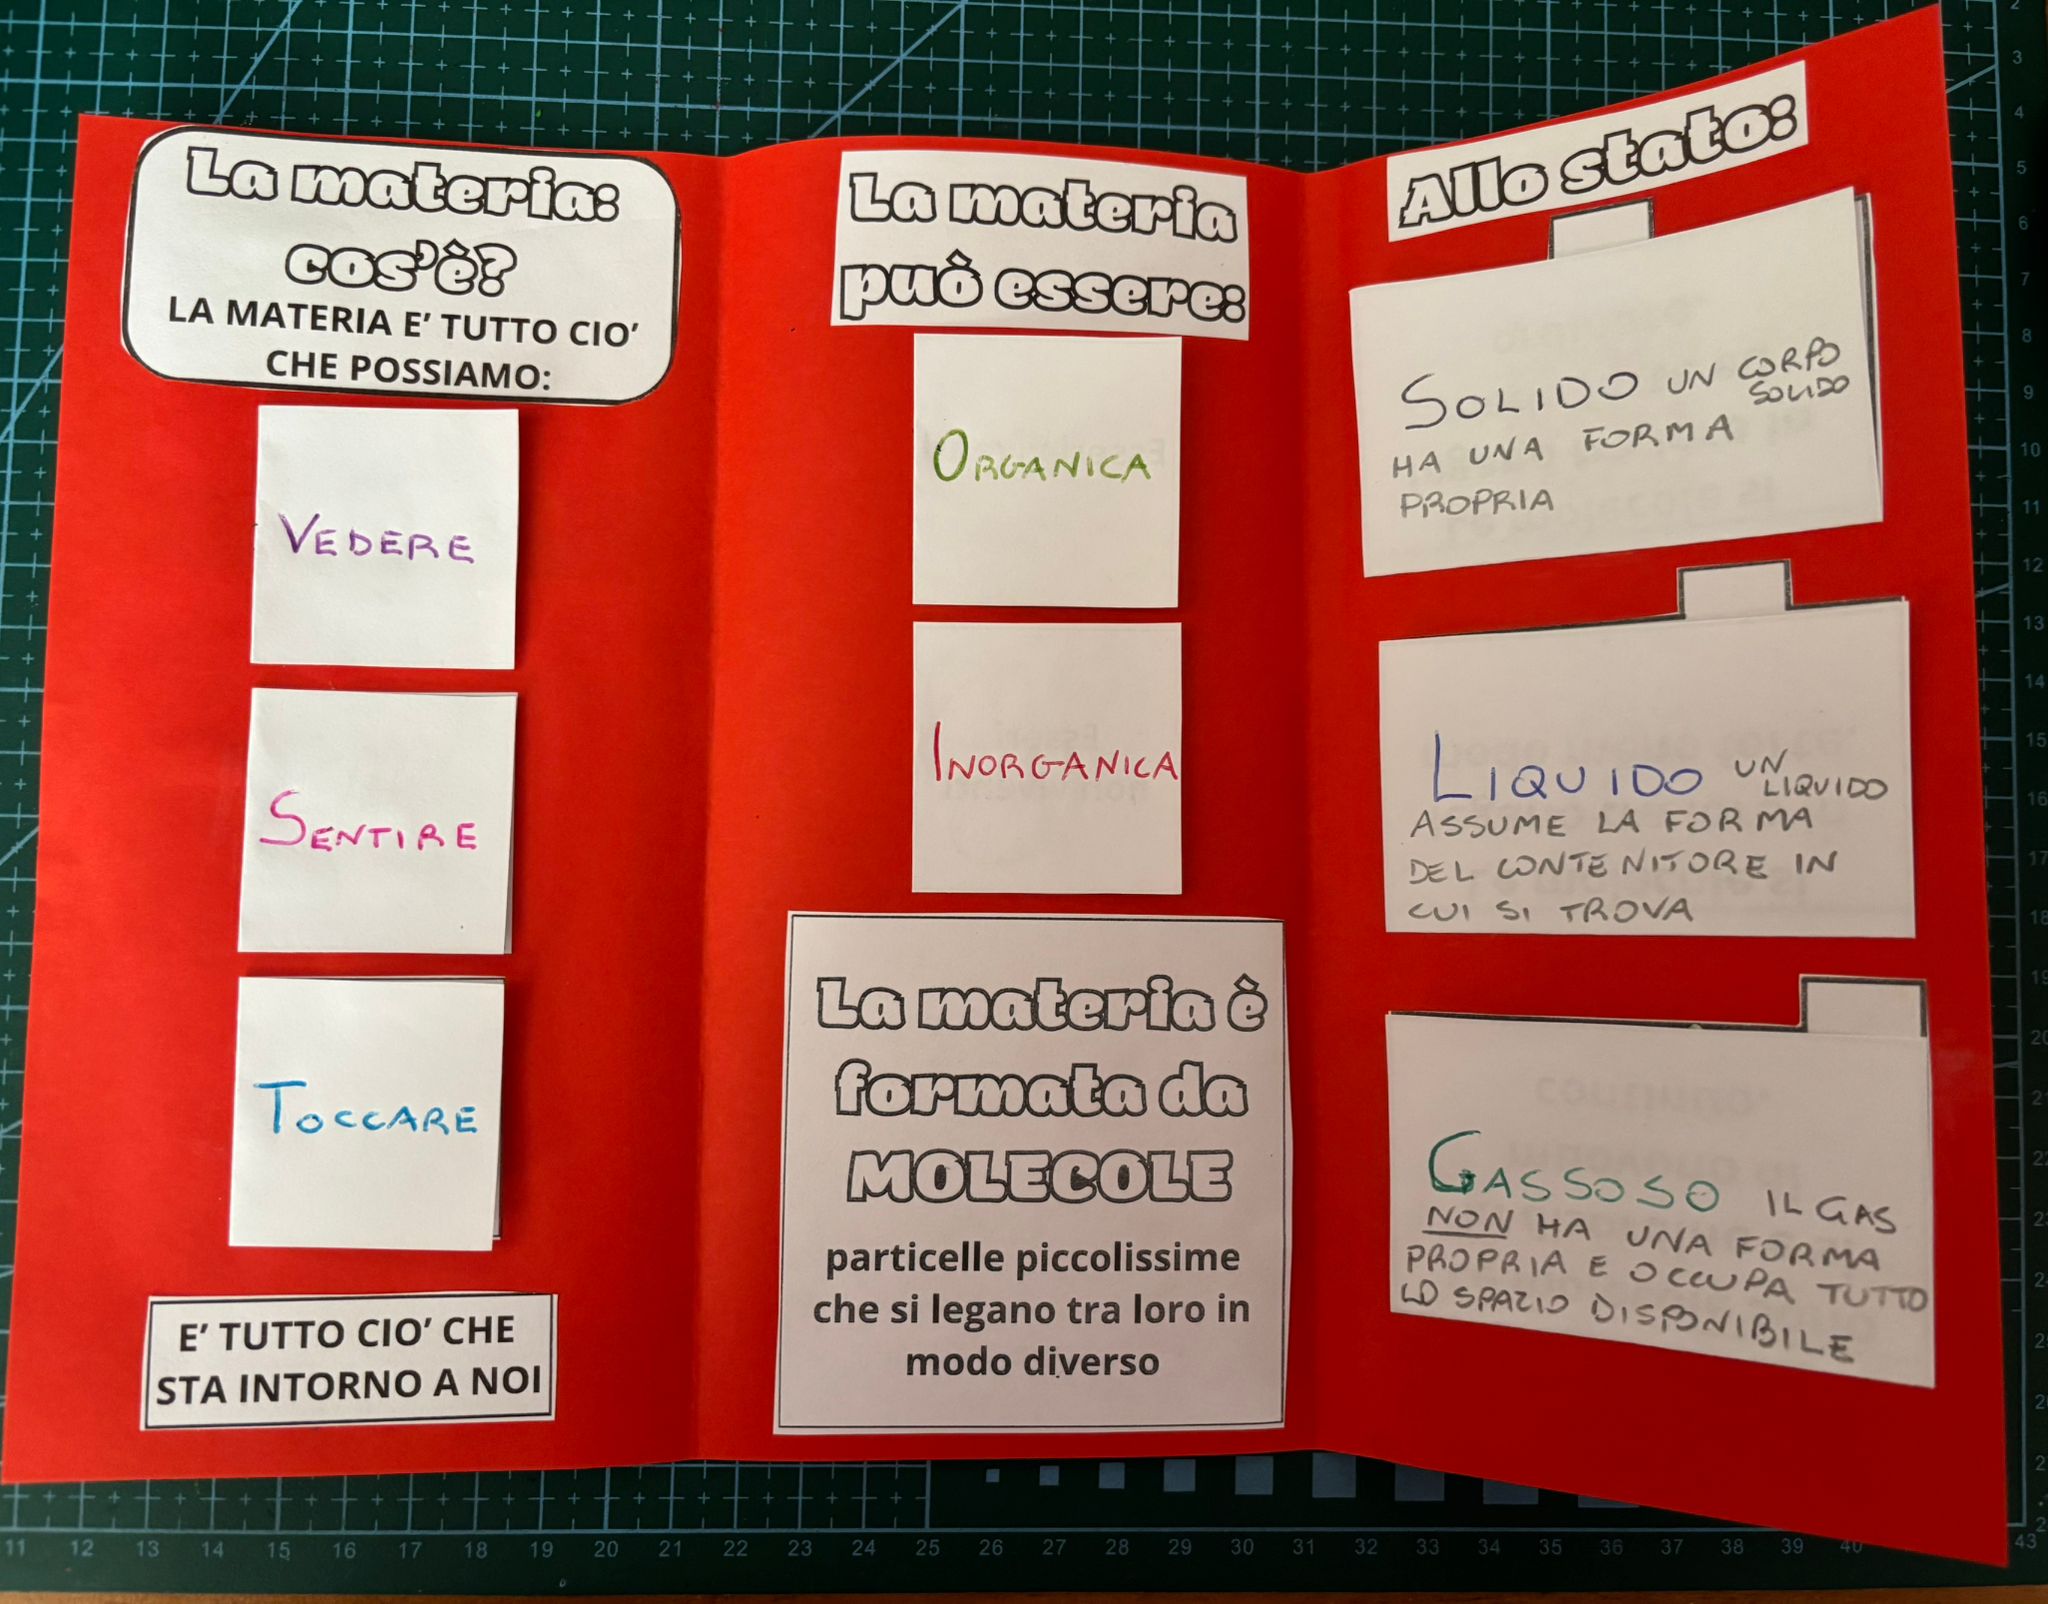 La materia:
cos'è?
LA MATERIA E' TUTTO CIO'
CHE POSSIAMO:
VEDERE
SENTIRE
TOCCARE
E' TUTTO CIO' CHE
STA INTORNO A NOI
La materia
può essere:
ORGANICA
INORGANICA
La materia è
formata da
MOLECOLE
particelle piccolissime
che si legano tra loro in
modo diverso
Allo stato:
SOLIDO UN CORPO
SOLIDO
HA UNA FORMA
PROPRIA
LIQUIDO UN
LIQUIDO
ASSUME LA FORMA
DEL CONTENITORE IN
CUI SI TROVA
GASSOSO IL GAS
NON HA UNA FORMA
PROPRIA E OCCUPA TUTTO
LO SPAZIO DISPONIBILE
11 12 13 14 15 16 17 18 19 20 21 22 23 24 25 26 27 28 29 30 31 32 33 34 35 36 37 38 39 40 43